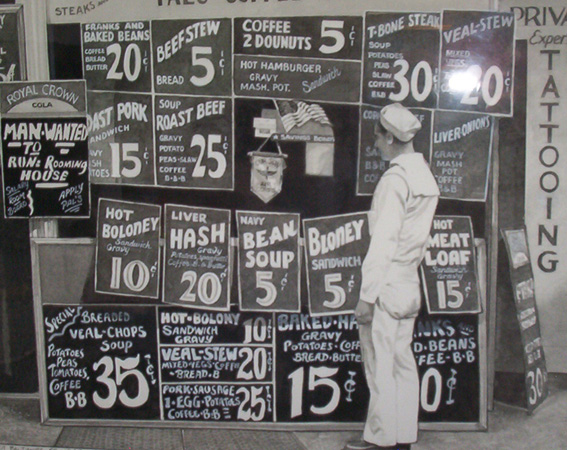 STEAKS
PALS COFFEE
PRIVA
Exper
TATTOOING
FRANKS AND
BAKED BEANS
COFFEE
BREAD
BUTTER
20¢
BEEF STEW
BREAD 5¢
COFFEE
2 DOUNUTS 5¢
HOT HAMBURGER
GRAVY
MASH. POT. Sandwich
T-BONE STEAK
SOUP
POTATOES
PEAS
SLAW
COFFEE
B-B
30¢
VEAL-STEW
MIXED
20¢
ROYAL CROWN
COLA
MAN-WANTED
TO
RUN-ROOMING
HOUSE
SALARY
ROOM
BOARD
APPLY
PAL'S
AST PORK
SANDWICH
15¢
SOUP
ROAST BEEF
GRAVY
POTATO
PEAS-SLAW
COFFEE-B-B
25¢
LIVER-ONIONS
GRAVY
MASH
POT
COFFEE
B-B
HOT
BOLONEY
Sandwich
Gravy
10¢
LIVER
HASH
Gravy
Potatoes, Spaghetti
Coffee-B-Butter
20¢
NAVY
BEAN
SOUP
5¢
BLONEY
SANDWICH
5¢
HOT
MEAT
LOAF
Sandwich
Gravy
15¢
Special-
BREADED
VEAL-CHOPS
SOUP
POTATOES
PEAS
TOMATOES,
COFFEE
B-B
35¢
HOT-BOLONY
SANDWICH
GRAVY
10¢
VEAL-STEW
MIXED-VEGS-COFFEE
-BREAD-B
20¢
PORK-SAUSAGE
1-EGG-POTATOES
COFFEE-B-B
25¢
BAKED-HA
GRAVY
POTATOES-COFF
BREAD-BUTTER
15¢
NKS
D-BEANS
FEE-B-B
0¢
30